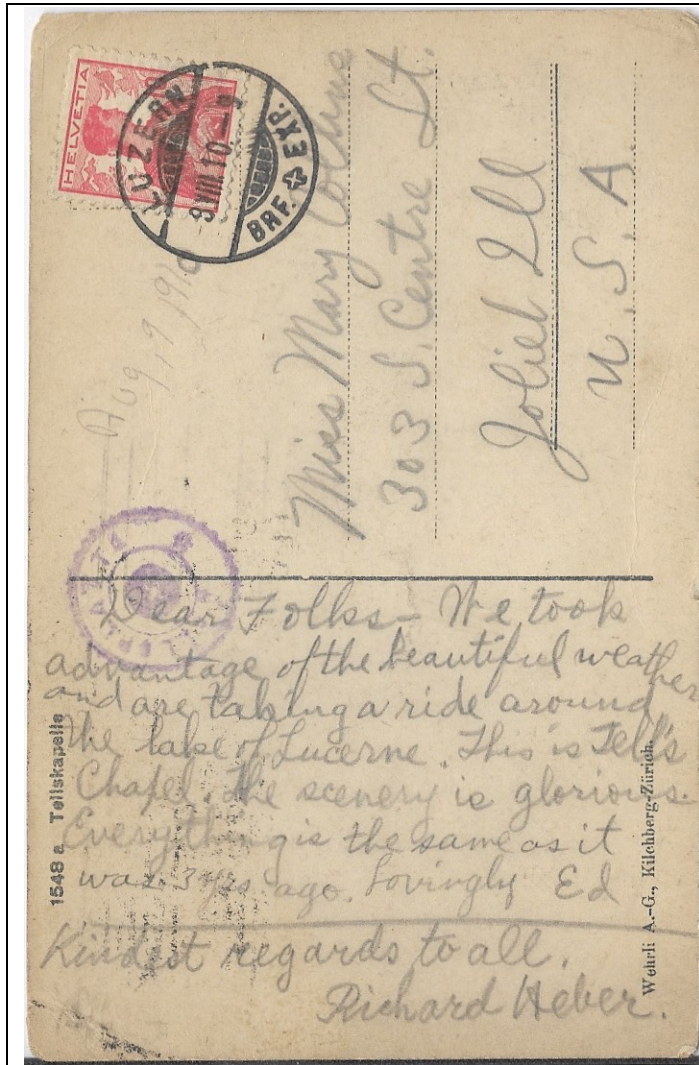 HELVETIA
LUZERN
9.VIII.10.-9
BRF. EXP.
Aug, 9, 1910
Miss Mary
303 S. Centre St.
Joliet Ill
U. S. A
Dear Folks - We took
advantage of the beautiful weather
and are taking a ride around
the lake of Lucerne. This is Tell's
Chapel. The scenery is glorious.
Everything is the same as it
was 3 yrs ago. Lovingly Ed
Kindest regards to all.
Richard Heber.
1548 a Tellskapelle
Wehrli A.-G., Kilchberg-Zürich.